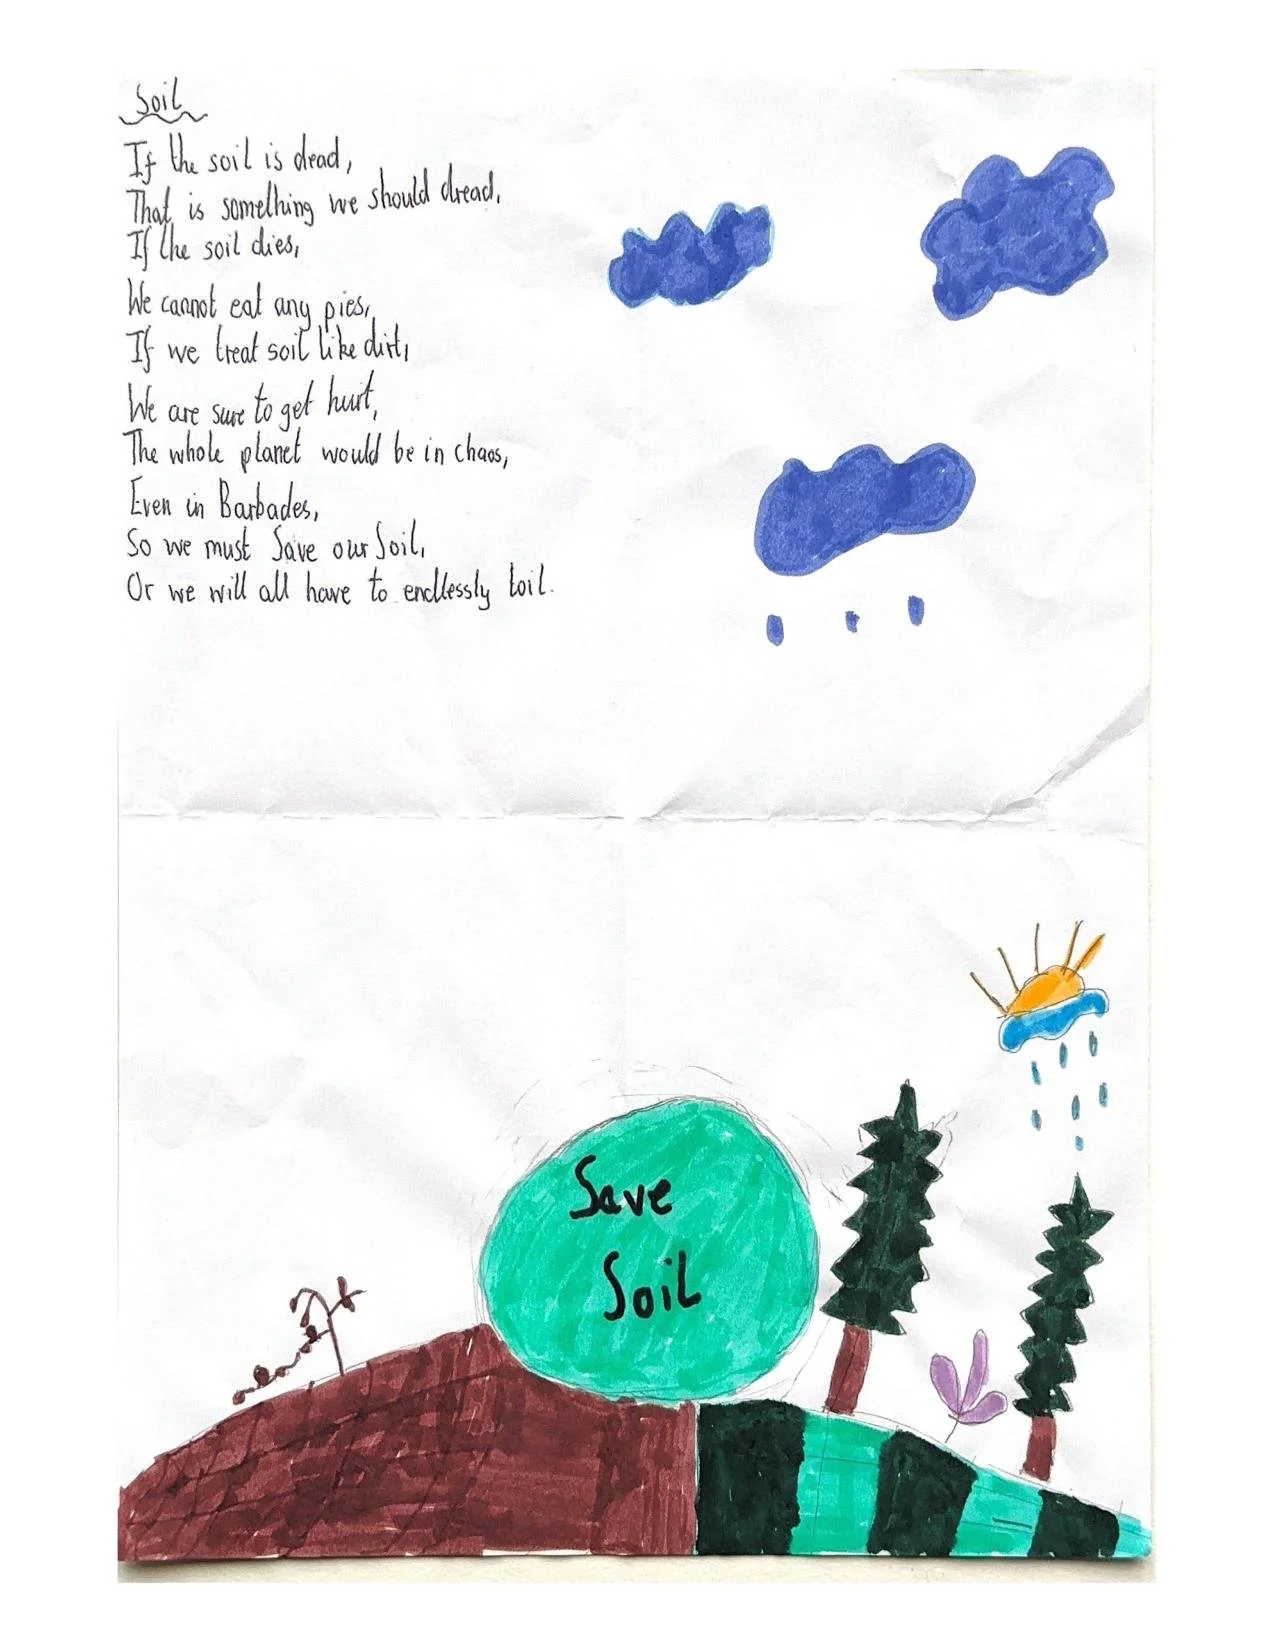 Soil
If the soil is dead,
That is something we should dread,
If the soil dies,
We cannot eat any pies,
If we treat soil like dirt,
We are sure to get hurt,
The whole planet would be in chaos,
Even in Barbades,
So we must Save our Soil,
Or we will all have to endlessly toil.
Save
Soil